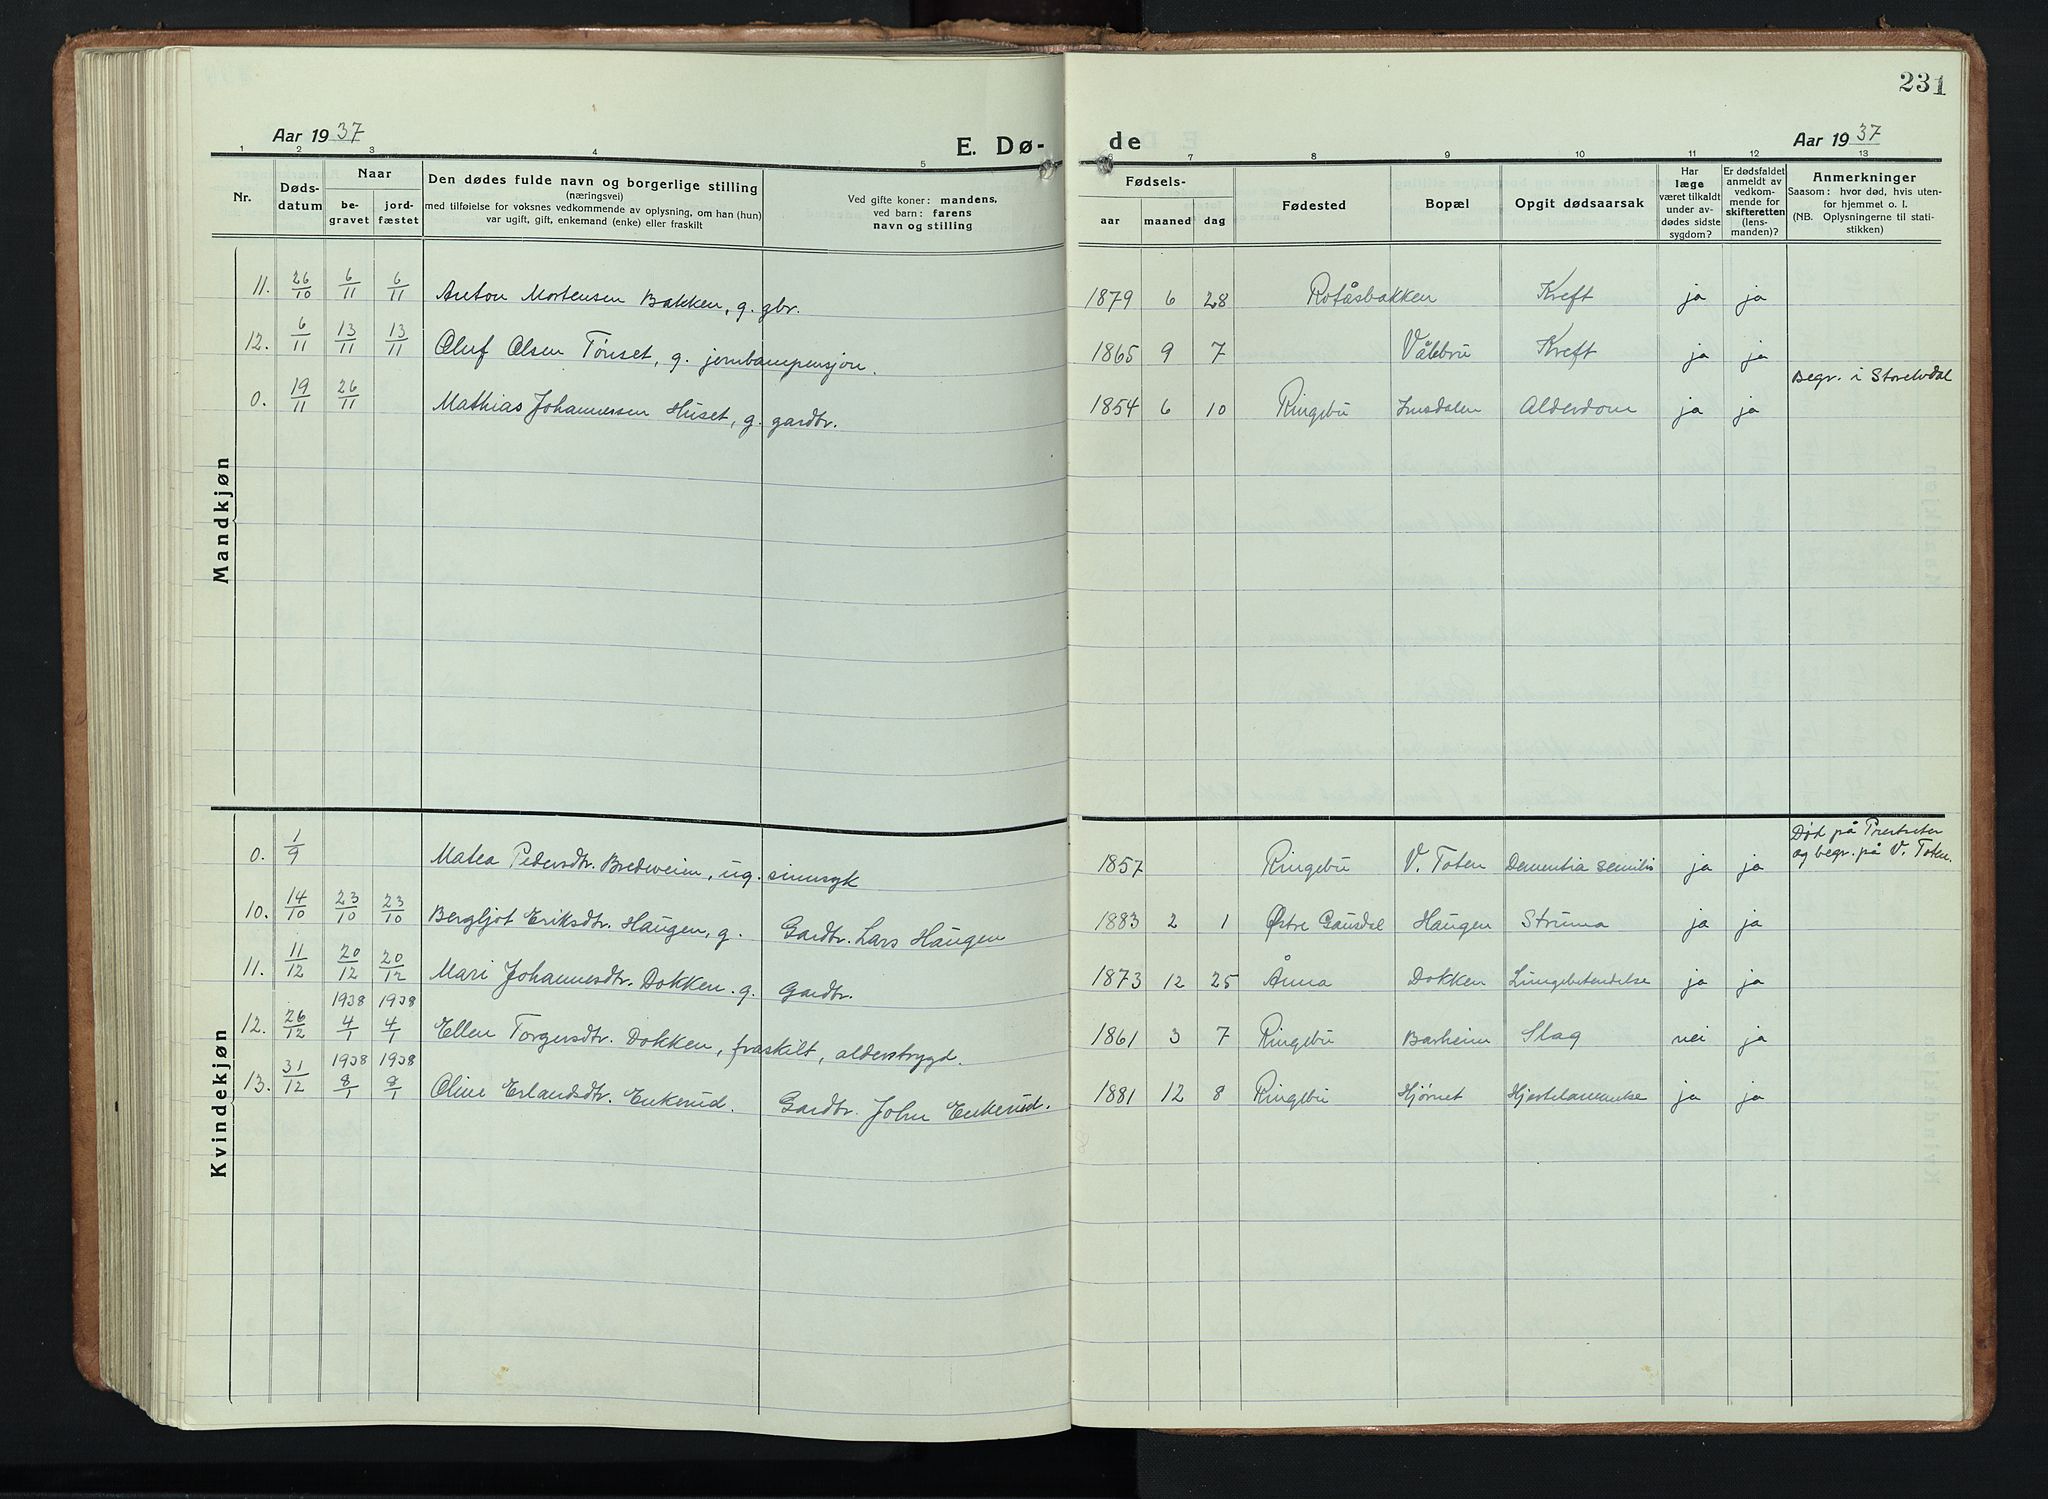 231
Aar 1937
E. Dø-
de
Aar 1937
1 2 3 4 5 6 7 8 9 10 11 12 13
Nr.
Døds-
datum
Naar
be-
gravet
jord-
fæstet
Den dødes fulde navn og borgerlige stilling
(næringsvei)
med tilføielse for voksnes vedkommende av oplysning, om han (hun)
var ugift, gift, enkemand (enke) eller fraskilt
Ved gifte koner: mandens,
ved barn: farens
navn og stilling
Fødsels-
aar maaned dag
Fødested
Bopæl
Opgit dødsaarsak
Har
læge
været tilkaldt
under av-
dødes sidste
sygdom?
Er dødsfaldet
anmeldt av
vedkom-
mende for
skifteretten
(lens-
manden)?
Anmerkninger
Saasom: hvor død, hvis uten-
for hjemmet o. l.
(NB. Oplysningerne til stati-
stikken)
Mandkjøn
11. 26/10 6/11 6/11 Anton Mortensen Bakken, g. gbr. 1879 6 28 Rotåsbakken Kreft ja ja
12. 6/11 13/11 13/11 Oluf Olsen Tønset, g. jernbanepensjon. 1865 9 7 Vålebru Kreft ja ja
Begr. i Storelvdal
0. 19/11 26/11 Mathias Johannessen Huset, g. gardbr. 1854 6 10 Ringebu Imsdalen Alderdom ja ja
Kvindekjøn
Død på Prestseter
og begr. på V. Toten.
0. 1/9 Matea Pedersdtr. Bredeveien, ug. sinnsyk 1857 Ringebu V. Toten Dementia senilis ja ja
10. 14/10 23/10 23/10 Bergljot Eriksdtr. Haugen, g. Gardbr. Lars Haugen 1883 2 1 Østre Gausdal Haugen Struma ja ja
11. 11/12 20/12 20/12 Mari Johannesdtr. Dokken. g. Gardbr. 1873 12 25 Ånna Dokken Lungebetendelse ja ja
1938 1938
12. 26/12 4/1 4/1 Ellen Torgersdtr. Dokken, fraskilt, alderstrygd. 1861 3 7 Ringebu Barheim Slag nei ja
1938 1938
13. 31/12 8/1 8/1 Oline Erlandsdtr. Enkerud. Gardbr. John Enkerud. 1881 12 8 Ringebu Hjørnet Hjertelammelse ja ja